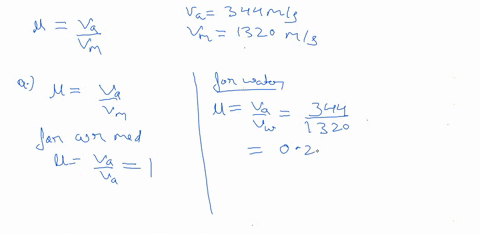 μ = Va/Vm
Va = 344 m/s
Vm = 1320 m/s
a.) μ = Va/Vm
for air med
μ = Va/Va = 1
for water
μ = Va/Vw = 344/1320
= 0.2